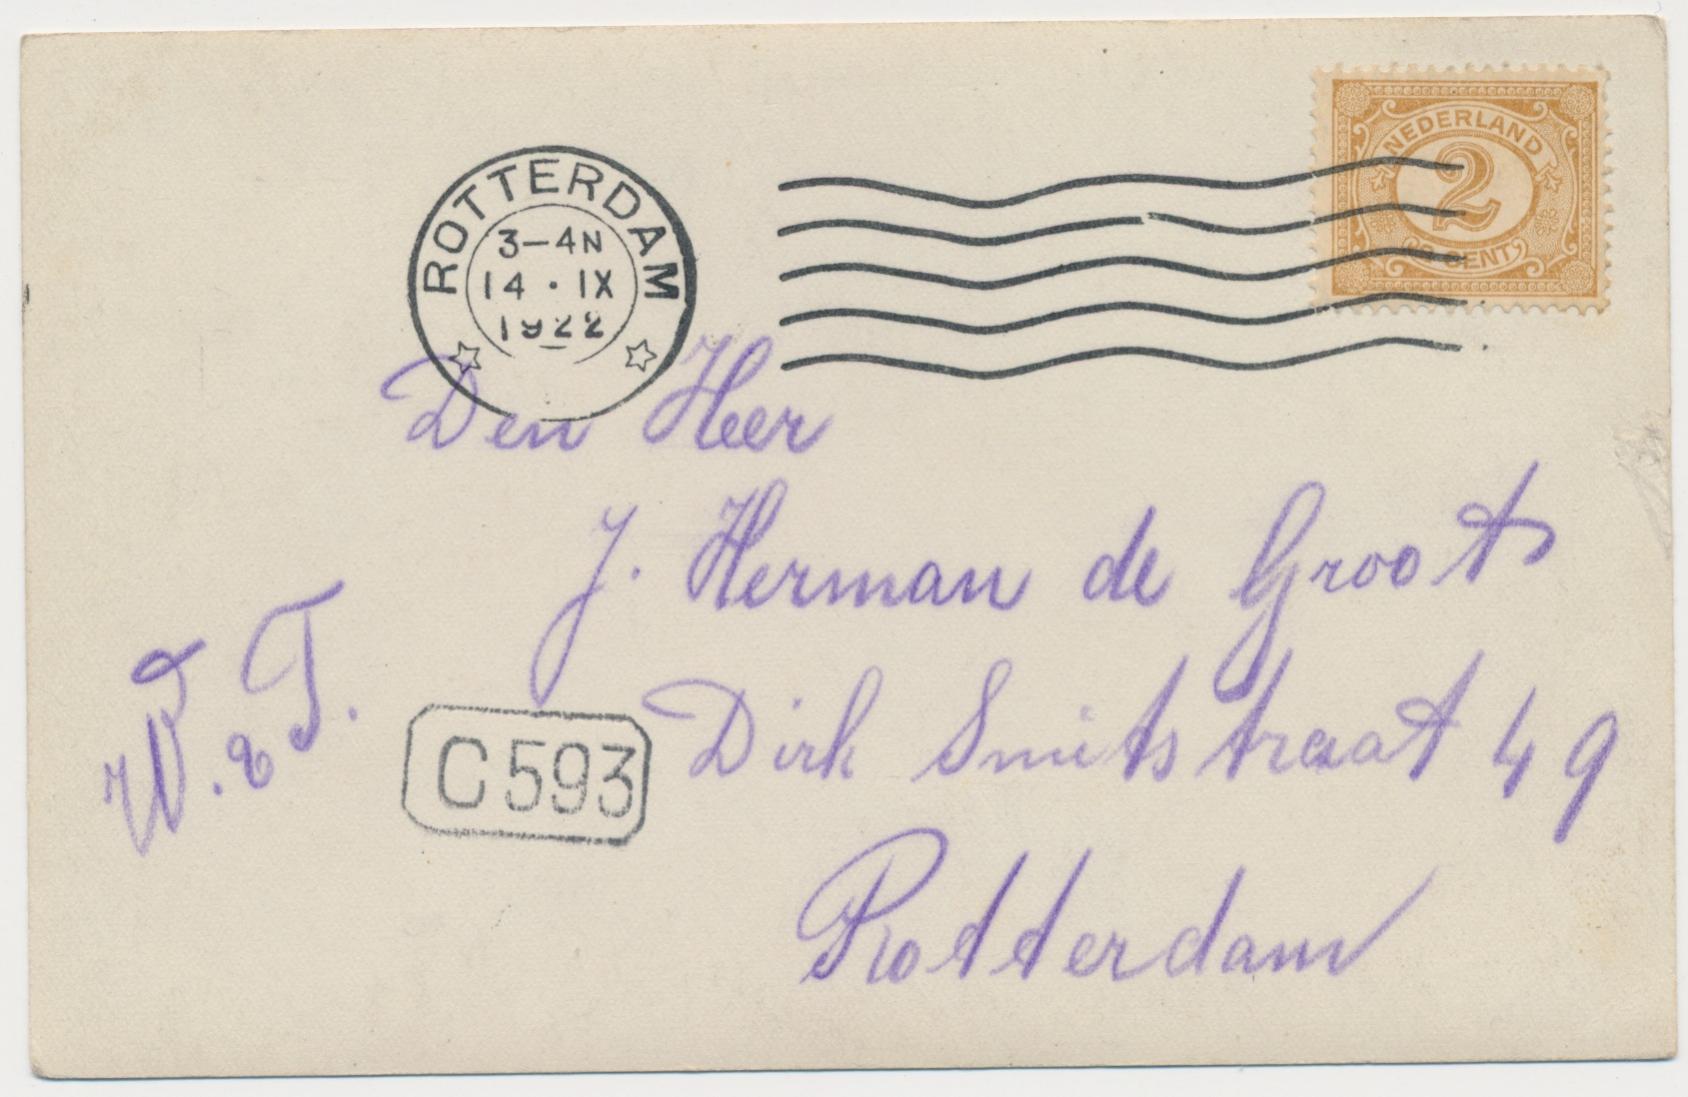 ROTTERDAM
3-4N
14 · IX
1922
NEDERLAND
2
2 CENT
Den Heer
J. Herman de Groot
Dirk Smitstraat 49
Rotterdam
W. & T.
C593